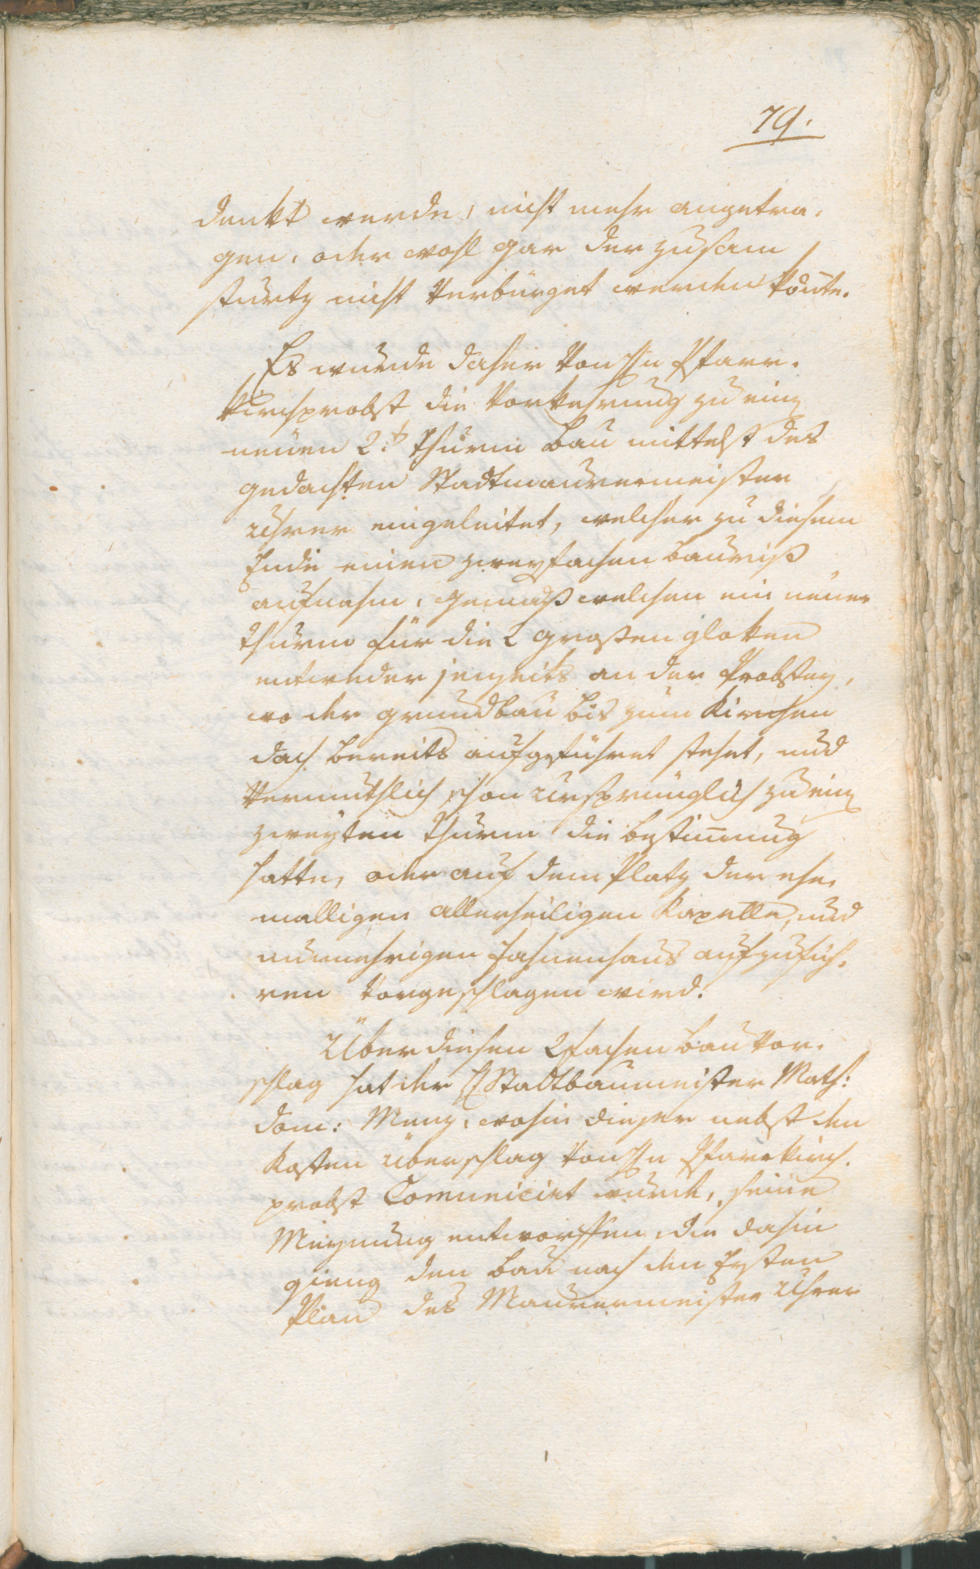 79.
denkt werde, nicht mehr angetra,
gen, oder wohl gar der zusam
sturtz nicht verbürget werden könte.
Es wurde daher von Hn Pfarr,
Kirchprobst die Vorkehrung zu eine
neüen 2.t Thurm bau mittelst des
gedachten Stadtmaurermeister
Uhrer eingeleitet, welcher zu diesem
Ende einen zweyfachen bauriß
aufnahm, gemäß welchen ein neuer
thurm für die 2 grosten gloken
entweder jenseits an der Probstey,
wo der grundbau bis zum Kirchen
dach bereits aufgeführet stehet, und
vermuthlich schon ursprünglich zu eine
zweyten thurm die bestimung
hatte, oder auf dem Platz der ehe,
malligen allerheiligen Kapelle, und
nunmehrigen fahnenhaus aufzufüh,
ren vorgeschlagen wird.
Über diesen 2fachen bau Vor,
schlag hat der H Stadtbaumeister Math:
dom: Menz, wohin dieser nebst den
Kosten überschlag von Hn Pfarrkirch,
probst Comunicirt wurde, seine
Meynung entworffen, die dahin
gieng den bau nach den Ersten
Plan des Maurermeister Uhrer